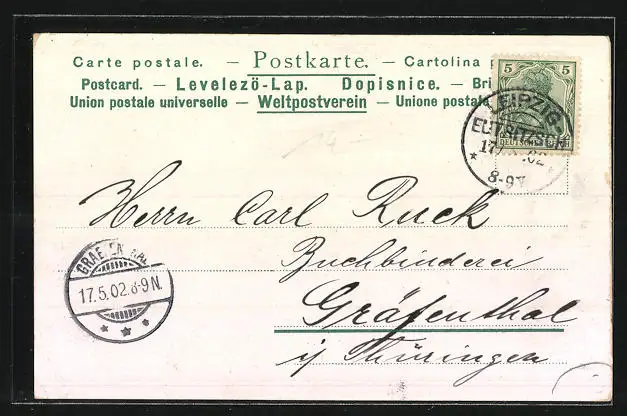 Carte postale. — Postkarte. — Cartolina
Postcard. — Levelezö-Lap. Dopisnice. — Bri
Union postale universelle — Weltpostverein — Unione postala
5 5
DEUTSCHES REICH
LEIPZIG-
EUTRITZSCH
17 02
8-9V
Herrn Carl Ruck
Buchbinderei
Gräfenthal
i/ Thüringen
GRAEFENTHAL
17.5.02.8-9N.